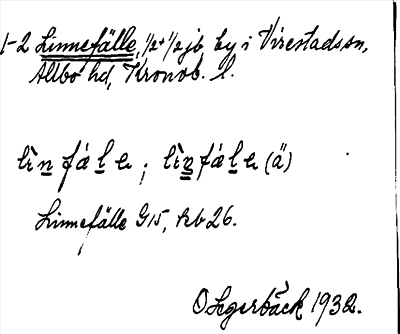 1-2 Linnefälle, 1/2+1/2 jb by i Virestads sn,
Allbo hd, Kronob. l.
lìn fále ; lìn fále (ä)
Linnefälle G15, kb 26.
O Segerbäck 1932.